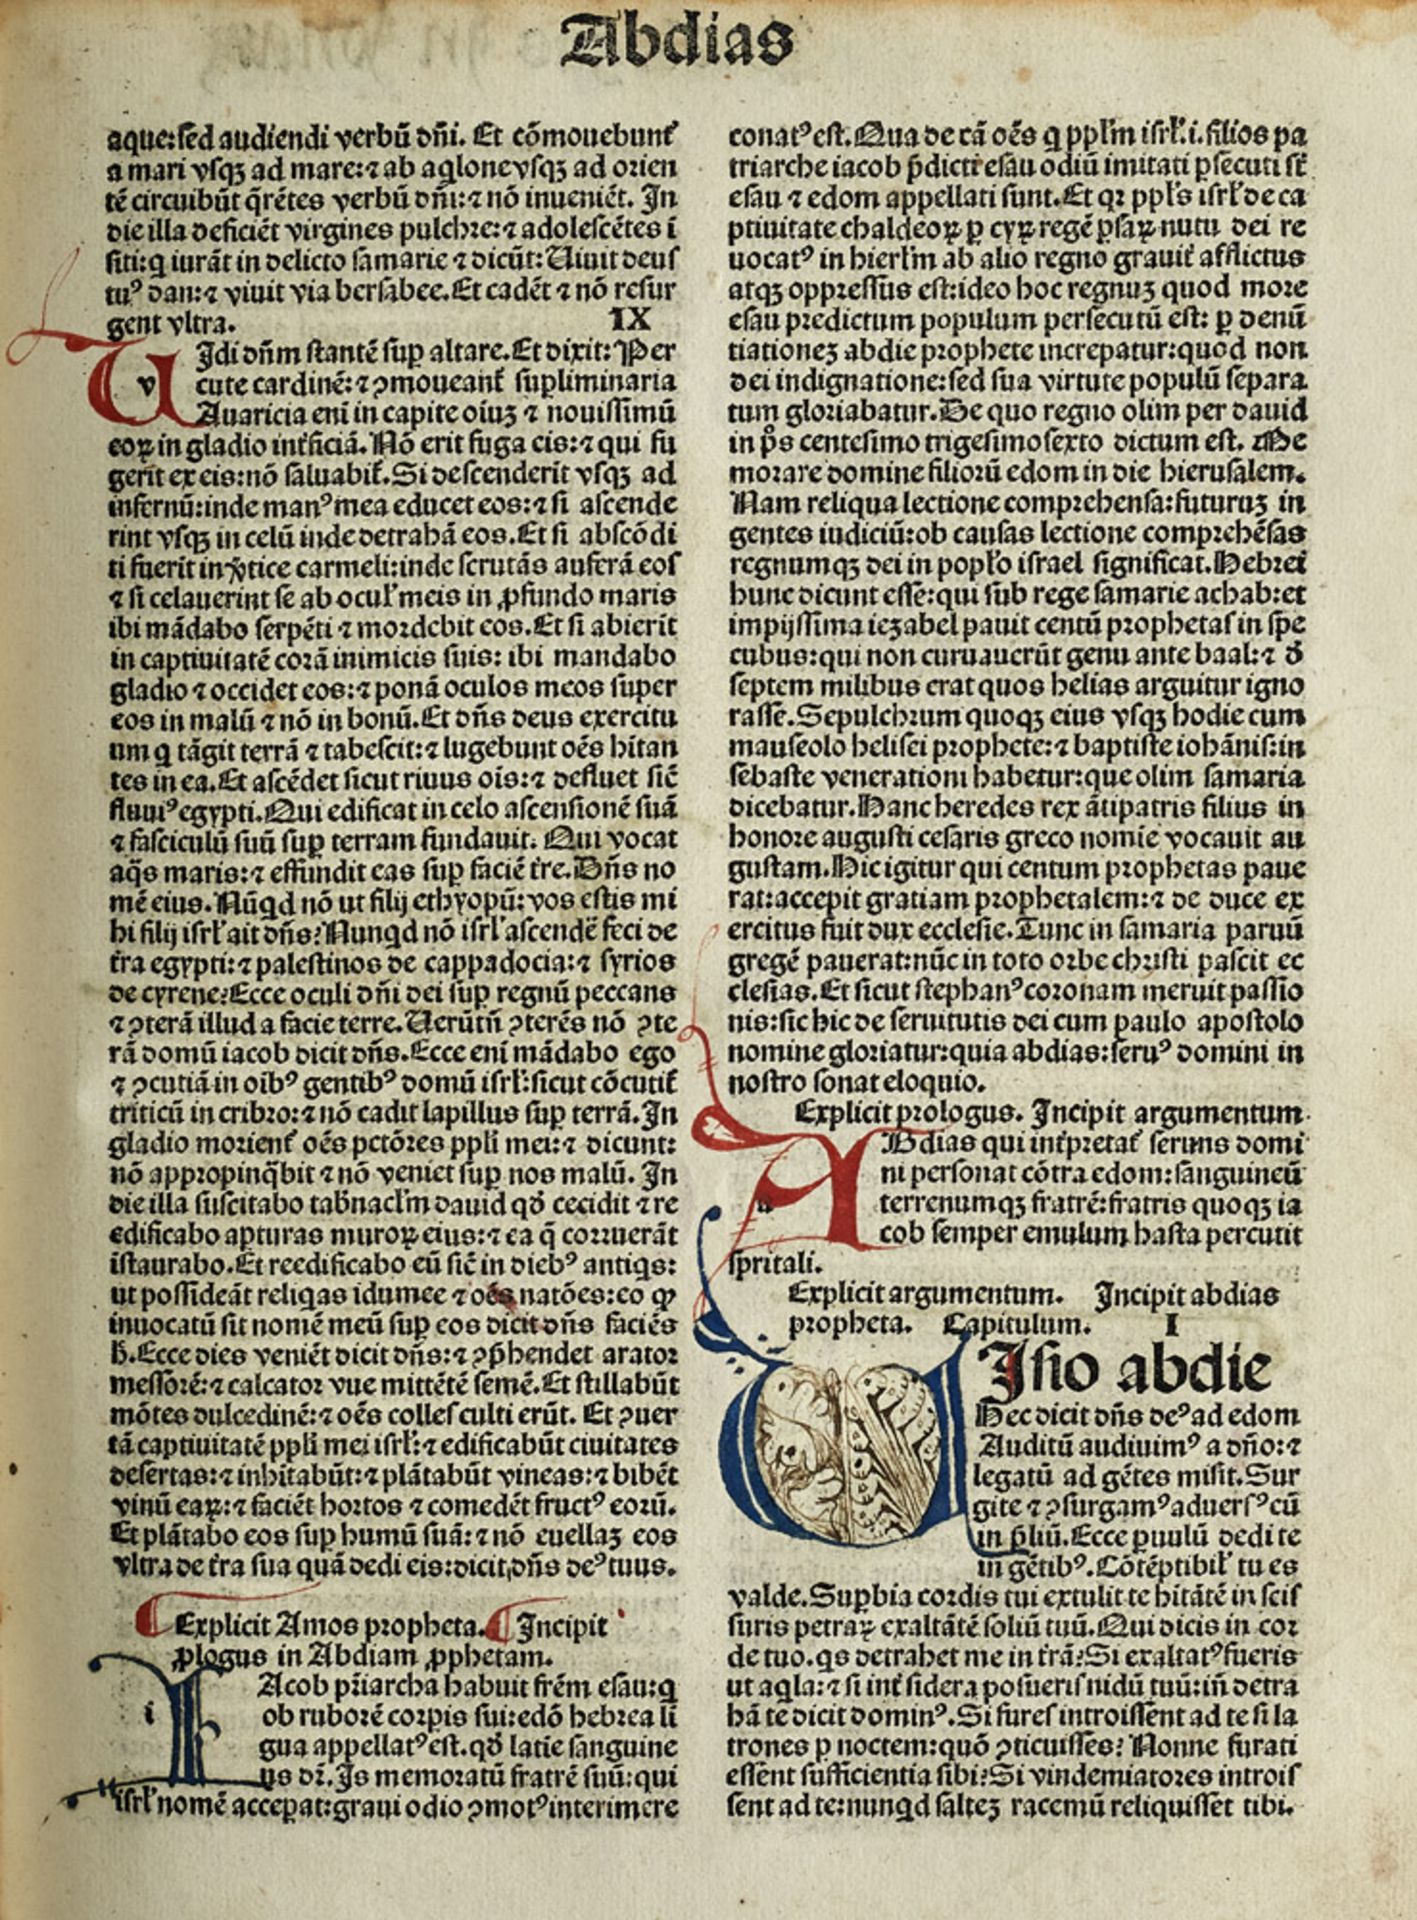 Abdias
aque: sed audiendi verbū dñi. Et cōmouebunt᷑
a mari vsqꝫ ad mare: ⁊ ab aq̇lone vsqꝫ ad orien
tē circuibūt q̄rētes verbū dñi: ⁊ nō inueniēt. In
die illa deficiēt virgines pulchre: ⁊ adolescētes ī
siti: q̇ iurāt in delicto samarie ⁊ dicūt: Uiuit deus
tuꝰ dan: ⁊ viuit via bersabee. Et cadēt ⁊ nō resur
gent vltra. IX
v
UIdi dn̄m stantē suꝑ altare. Et dixit: Per
cute cardinē: ⁊ ꝯmoueant᷑ suꝑliminaria
Auaricia enī in capite oīuꝫ ⁊ nouissimū
eoꝝ in gladio int᷑ficiā. Nō erit fuga eis: ⁊ qui fu
gerit ex eis: nō saluabit᷑. Si descenderit vsqꝫ ad
infernū: inde manꝰ mea educet eos: ⁊ si ascende
rint vsqꝫ in celū inde detrahā eos. Et si abscōdi
ti fuerit in v̾tice carmeli: inde scrutās auferā eos
⁊ si celauerint se ab ocul̕ meis in ꝓfundo maris
ibi mādabo serpēti ⁊ mordebit eos. Et si abierīt
in captiuitatē corā inimicis suis: ibi mandabo
gladio ⁊ occidet eos: ⁊ ponā oculos meos super
eos in malū ⁊ nō in bonū. Et dn̄s deus exercitu
um q̇ tāgit terrā ⁊ tabescit: ⁊ lugebunt oēs hītan
tes in ea. Et ascēdet sicut riuus oīs: ⁊ defluet sic̄
fluuiꝰ egypti. Qui edificat in celo ascensionē suā
⁊ fasciculū suū suꝑ terram fundauit. Qui vocat
aq̄s maris: ⁊ effundit eas suꝑ faciē t̾re. Dn̄s no
mē eius. Nūq̇d nō ut filij ethyopū: vos estis mi
hi filij isrl̕ ait dn̄s? Nunq̇d nō isrl̕ ascendē feci de
t̾ra egypti: ⁊ palestinos de cappadocia: ⁊ syrios
de cyrene? Ecce oculi dn̄i dei suꝑ regnū peccans
⁊ ꝯterā illud a facie terre. Uerūtn̄ ꝯterēs nō ꝯte
rā domū iacob dicit dn̄s. Ecce enī mādabo ego
⁊ ꝯcutiā in oībꝰ gentibꝰ domū isrl̕: sicut cōcutit᷑
triticū in cribro: ⁊ nō cadit lapillus suꝑ terrā. In
gladio morient᷑ oēs pctōres ppl̕i mei: ⁊ dicunt:
nō appropinq̄bit ⁊ nō veniet suꝑ nos malū. In
die illa suscitabo tab̾nacl̕m dauid qd̄ cecidit ⁊ re
edificabo aꝑturas muroꝝ eius: ⁊ ea q̄ corruerāt
īstaurabo. Et reedificabo eū sic̄ in diebꝰ antiq̇s:
ut possideāt reliq̇as idumee ⁊ oēs natōes: eo ꝙ
inuocatū sit nomē meū suꝑ eos dicit dn̄s faciēs
h̄. Ecce dies veniēt dicit dn̄s: ⁊ ꝯp̄hendet arator
messorē: ⁊ calcator vue mittētē semē. Et stillabūt
mōtes dulcedinē: ⁊ oēs colles culti erūt. Et ꝯuer
tā captiuitatē ppl̕i mei isrl̕: ⁊ edificabūt ciuitates
desertas: ⁊ inhītabūt: ⁊ plātabūt vineas: ⁊ bibēt
vinū eaꝝ: ⁊ faciēt hortos ⁊ comedēt fructꝰ eorū.
Et plātabo eos suꝑ humū suā: ⁊ nō euellaꝫ eos
vltra de t̾ra sua quā dedi eis: dicit dn̄s deꝰ tuus.
Explicit Amos propheta. Incipit
ꝓlogus in Abdiam ꝓphetam.
i
IAcob pr̄iarcha habuit fr̄em esau: q̇
ob ruborē corꝑis sui: edō hebrea lī
gua appellatꝰ est. qd̄ latīe sanguine
us dr̄. Is memoratū fratrē suū: qui
isrl̕ nomē acceꝑat: graui odio ꝯmotꝰ interimere
conatꝰ est. Qua de cā oēs q̇ ppl̕m isrl̕. i. filios pa
triarche iacob p̄dicti esau odiū imitati ꝑsecuti st̄
esau ⁊ edom appellati sunt. Et qꝛ ppl̕s isrl̕ de ca
ptiuitate chaldeoꝝ ꝑ cyꝝ regē ꝑsaꝝ nutu dei re
uocatꝰ in hierl̕m ab alio regno grauit᷑ afflictus
atqꝫ oppressus est: ideo hoc regnuꝫ quod more
esau predictum populum persecutū est: ꝑ denū
tiationeꝫ abdie prophete increpatur: quod non
dei indignatione: sed sua virtute populū separa
tum gloriabatur. De quo regno olim per dauid
in pͦs centesimo trigesimosexto dictum est. Me
morare domine filiorū edom in die hierusalem.
Nam reliqua lectione comprehensa: futuruꝫ in
gentes iudiciū: ob causas lectione comprehēsas
regnumqꝫ dei in popl̕o israel significat. Hebrei
hunc dicunt esse: qui sub rege samarie achab: et
impijssima iezabel pauit centū prophetas in spe
cubus: qui non curuauerūt genu ante baal: ⁊ d̄
septem milibus erat quos helias arguitur igno
rasse. Sepulchrum quoqꝫ eius vsqꝫ hodie cum
mauseolo helisei prophete: ⁊ baptiste iohānis: in
sebaste venerationi habetur: que olim samaria
dicebatur. Hanc heredes rex ātipatris filius in
honore augusti cesaris greco nomīe vocauit au
gustam. Hic igitur qui centum prophetas paue
rat: accepit gratiam prophetalem: ⁊ de duce ex
ercitus fuit dux ecclesie. Tunc in samaria paruū
gregē pauerat: nūc in toto orbe christi pascit ec
clesias. Et sicut stephanꝰ coronam meruit passio
nis: sic hic de seruitutis dei cum paulo apostolo
nomine gloriatur: quia abdias: seruꝰ domini in
nostro sonat eloquio.
Explicit prologus. Incipit argumentum
a
ABdias qui int᷑pretat᷑ seruus domi
ni personat cōtra edom: sanguineū
terrenumqꝫ fratrē: fratris quoqꝫ ia
cob semper emulum hasta percutit
spiritali.
Explicit argumentum. Incipit abdias
propheta. Capitulum. I
UIsio abdie
Hec dicit dn̄s deꝰ ad edom
Auditū audiuimꝰ a dn̄o: ⁊
legatū ad gētes misit. Sur
gite ⁊ ꝯsurgamꝰ aduersꝰ eū
in p̄liū. Ecce ꝑuulū dedi te
in gētibꝰ. Cōtēptibil̕ tu es
valde. Suꝑbia cordis tui extulit te hītātē in scis
suris petraꝝ exaltātē soliū tuū. Qui dicis in cor
de tuo. q̇s detrahet me in t̾rā? Si exaltatꝰ fueris
ut aq̇la: ⁊ si int᷑ sidera posueris nidū tuū: in̄ detra
hā te dicit dominꝰ. Si fures introissent ad te si la
trones ꝑ noctem: quō ꝯticuisses? Nonne furati
essent sufficientia sibi? Si vindemiatores introis
sent ad te: nunq̇d salteꝫ racemū reliquissēt tibi.